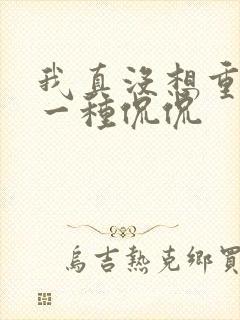 我真沒想重
一種侃侃
烏吉熱克鄉買